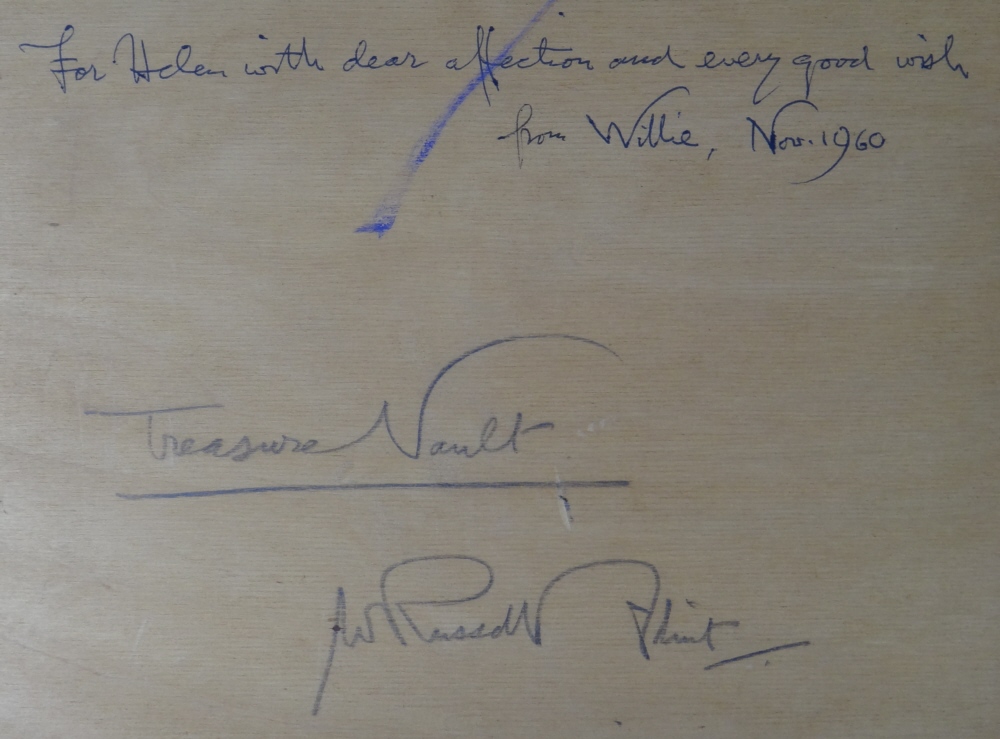 For Helen with dear affection and every good wish
from Willie, Nov. 1960
Treasure Vault
W Russell Flint